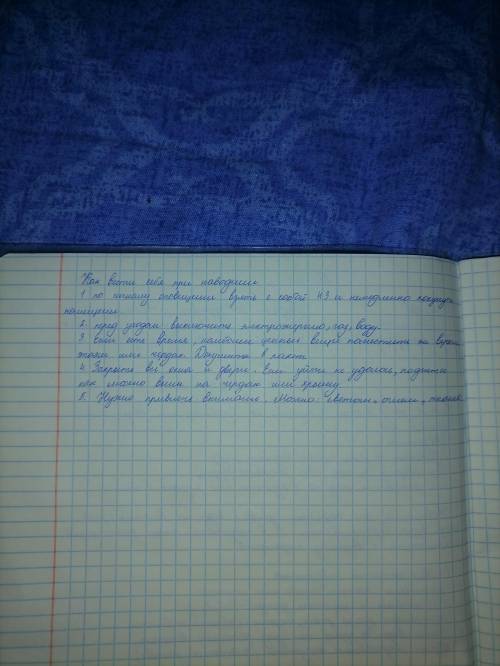 Как вести себя при наводнении
1 по сигналу оповещения взять с собой НЗ и немедленно покинуть
2. перед уходом выключить электроэнергию, газ, воду.
3 Если есть время, наиболее ценные вещи поместить на верхн
этаж или чердак. Документы в пакет.
4. Закрыть все окна и двери. Если уйти не удалось, поднять
как можно выше на чердак или крышу.
5. Нужно привлечь внимание. Можно: светом, огнем,